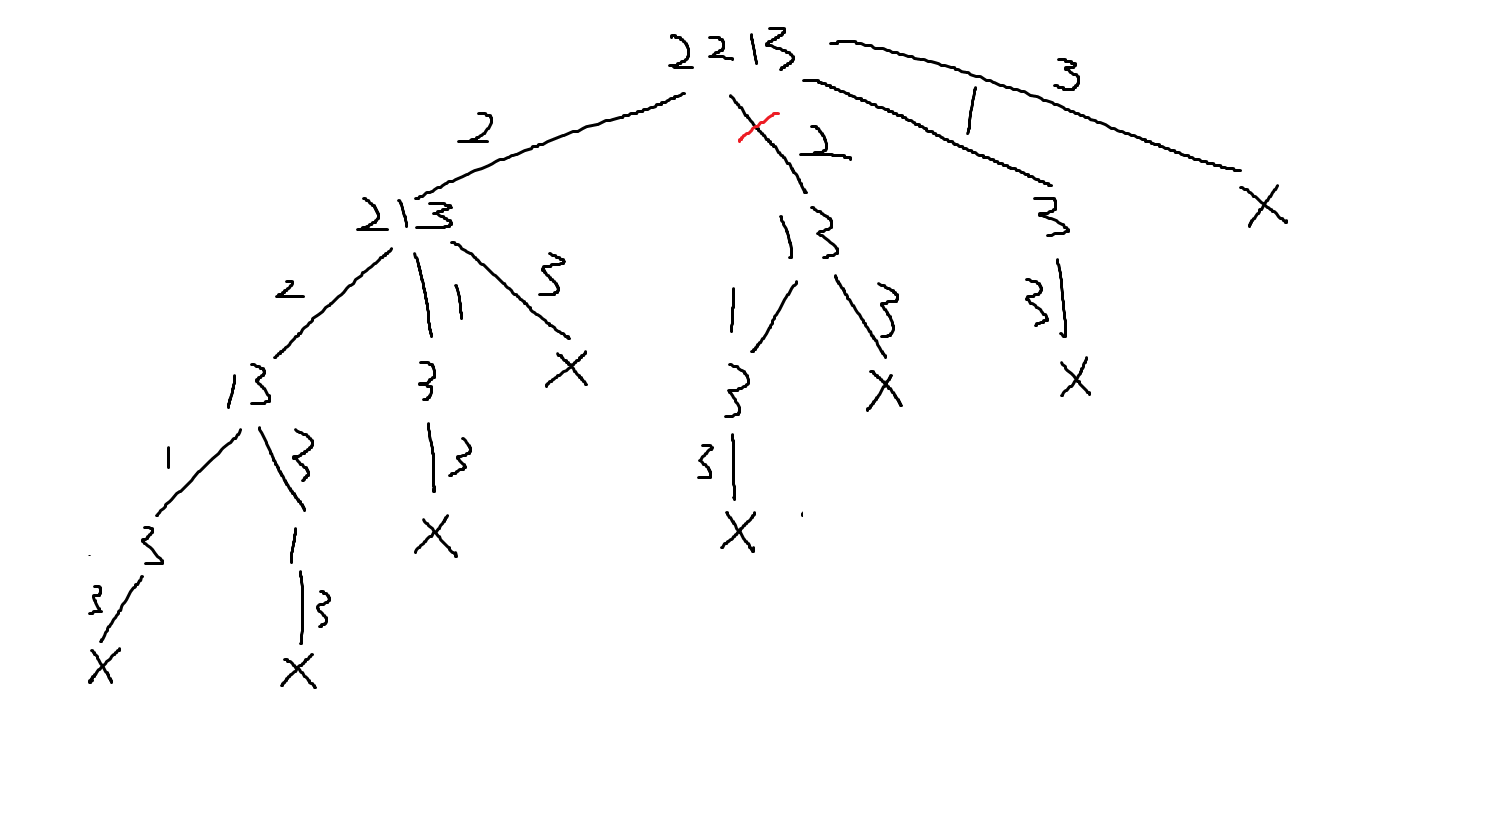 2213
3
2
1
2
213
13
3
X
2
1
3
1
3
3
13
3
X
3
X
X
1
3
3
3
X
3
1
X
3
3
X
X